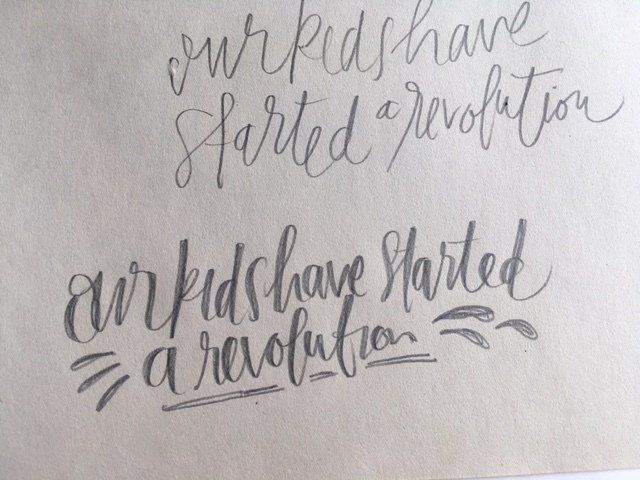 our kids have
started a revolution
our kids have started
a revolution